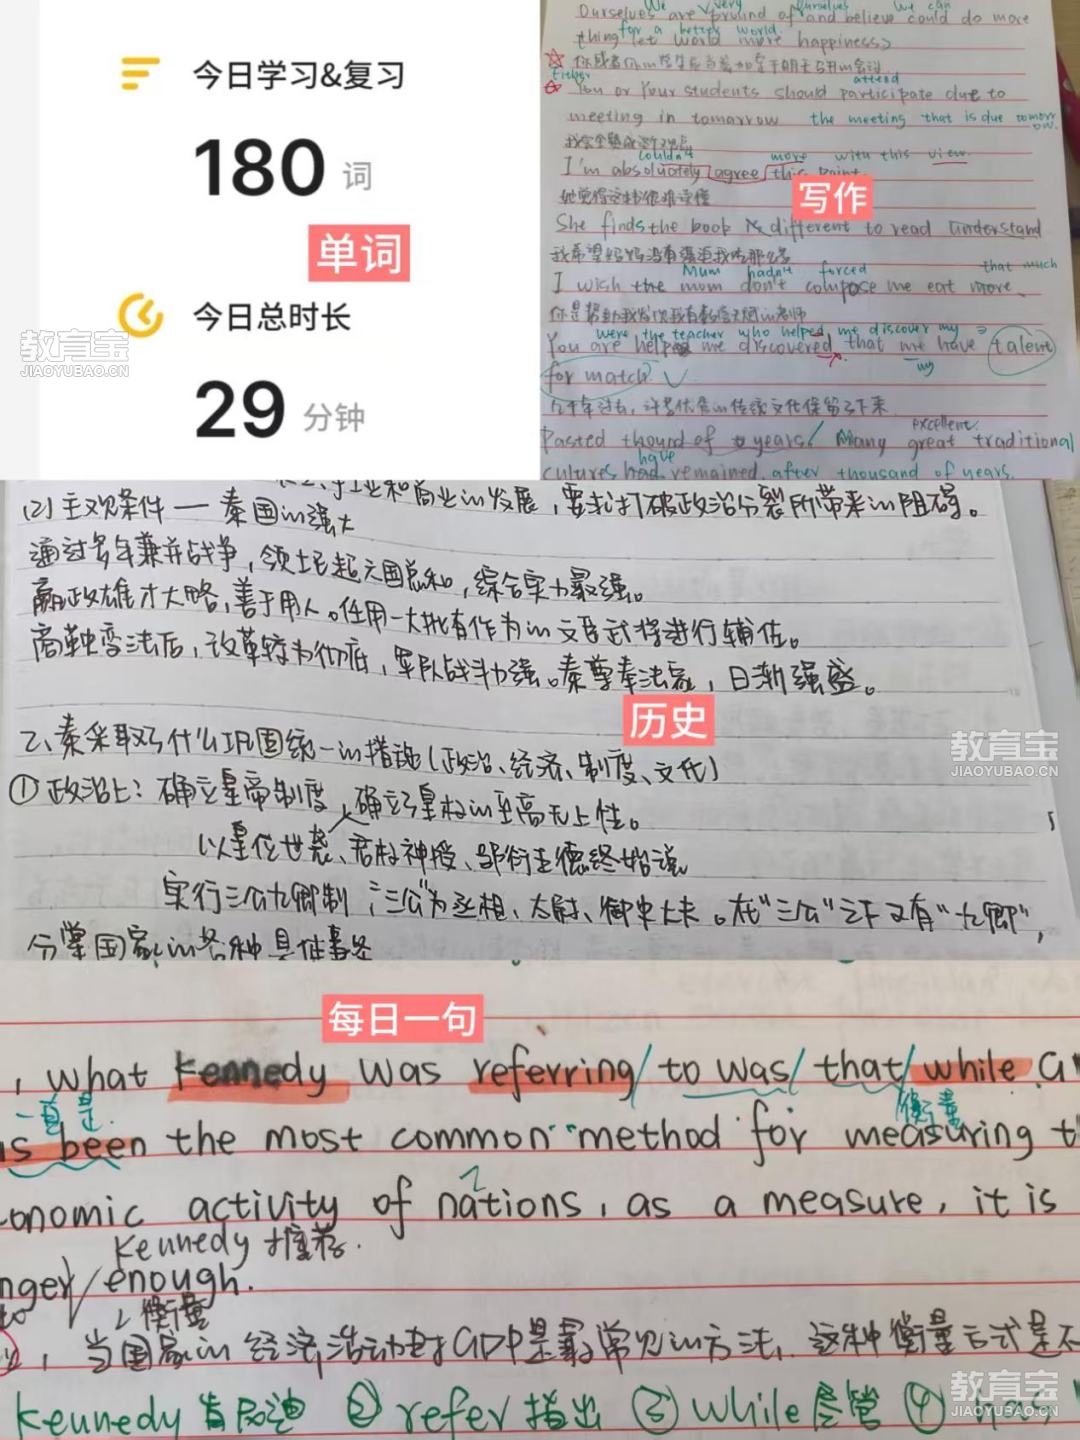 今日学习&复习
180 词
单词
今日总时长
29 分钟
教育宝
JIAOYUBAO.CN
We very ourselves we can
Ourselves are pround of and believe could do more
for a better world.
thing let world more happiness>
Either attend
You or Your students should participate due to
meeting in tomorrow the meeting that is due tomorrow.
couldn't more with this view.
I'm absoluately agree this point.
写作
She finds the book is different to read understand
Mum hadn't forced that much
I wish the mom don't compose me eat more.
were the teacher who helped me discover my
You are help me discovered that me have talent
my
for match.
几千年过去，许多优秀的传统文化保留了下来
excellent.
Pasted thound of years / Many great traditional
have
cultures had remained after thousand of years.
手工业和商业的发展，要求打破政治分裂所带来的阻碍。
(2)主观条件 — 秦国的强大
通过多年兼并战争，领土超六国总和，综合实力最强。
嬴政雄才大略，善于用人。任用一大批有作为的文臣武将进行辅佐。
商鞅变法后，改革较为彻底，军队战斗力强。秦尊奉法家，日渐强盛。
历史
2、秦采取了什么巩固统一的措施(政治、经济、制度、文化)
①政治上：确立皇帝制度，确立了皇权的至高无上性。
以皇位世袭、君权神授、邹衍五德终始说
实行三公九卿制；"三公"为丞相、太尉、御史大夫。在"三公"之下又有"九卿"，
分掌国家的各种具体事务
教育宝
JIAOYUBAO.CN
每日一句
, what Kennedy was referring/ to was/ that/ while G
一直是 衡量
s been the most common method for measuring t
onomic activity of nations, as a measure, it is
Kennedy 推荐.
nger/ enough.
衡量
，当国家的经济活动时GDP是最常见的方法，这种衡量方式是不
Kennedy 肯尼迪 ② refer 指出 ③ while 尽管 ④ has
教育宝
JIAOYUBAO.CN